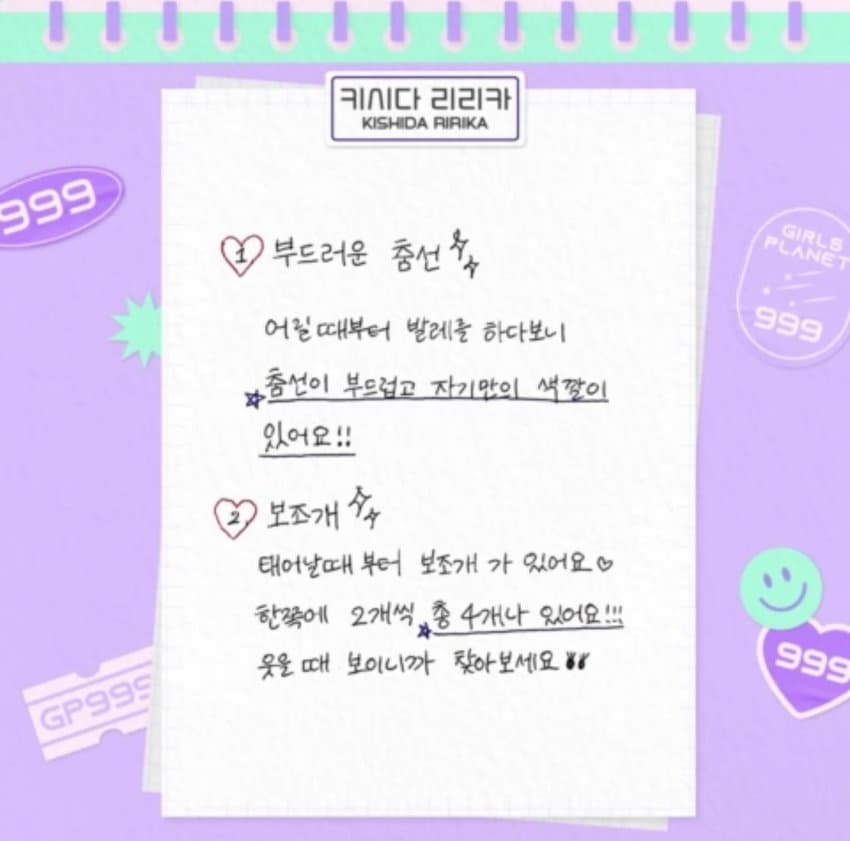 키시다 리리카
KISHIDA RIRIKA
999
GIRLS
PLANET
999
1 부드러운 춤선
어릴 때부터 발레를 하다보니
☆춤선이 부드럽고 자기만의 색깔이
있어요!!
2. 보조개
태어날때 부터 보조개 가 있어요♡
한쪽에 2개씩 ☆총 4개나 있어요!!!
웃을 때 보이니까 찾아보세요
999
GP999